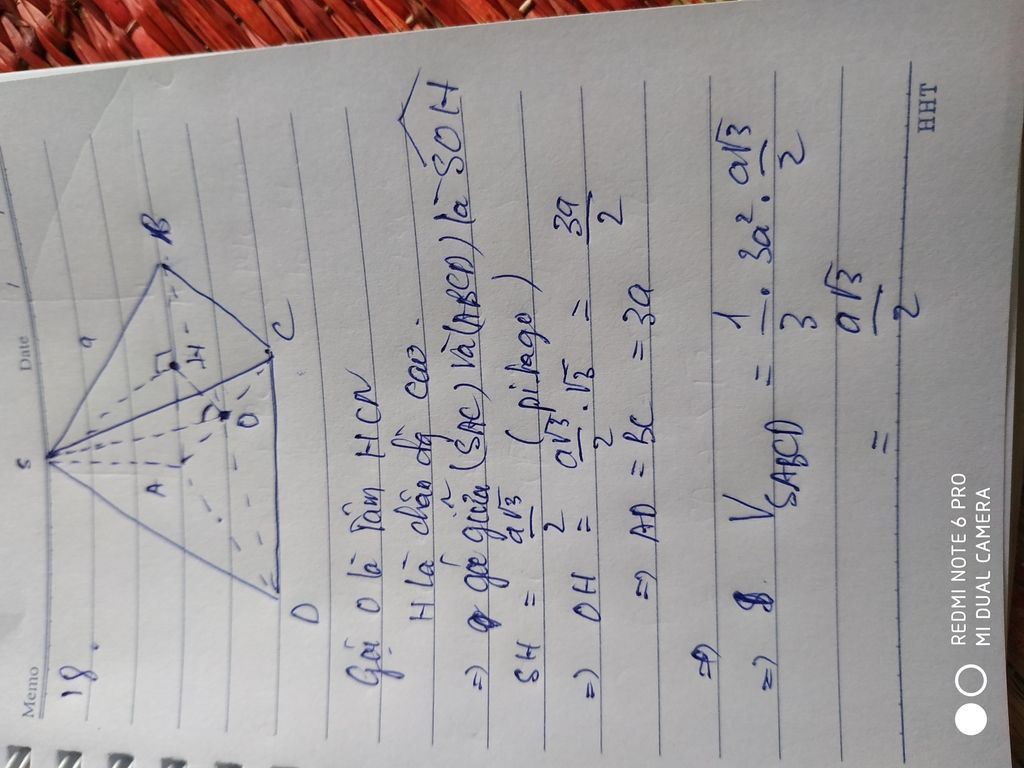 Memo
Date / /
18.
S
a
A
H
B
O
C
D
Gọi O là tâm HCN
H là chân đg cao.
=> góc giữa (SAC) và (ABCD) là SOH
SH = a√3/2 (pitago)
=> OH = a√3/2 . √3 = 3a/2
=> AD = BC = 3a
=>
=> V SABCD = 1/3 . 3a² . a√3/2
= a√3/2
HHT
REDMI NOTE 6 PRO
MI DUAL CAMERA